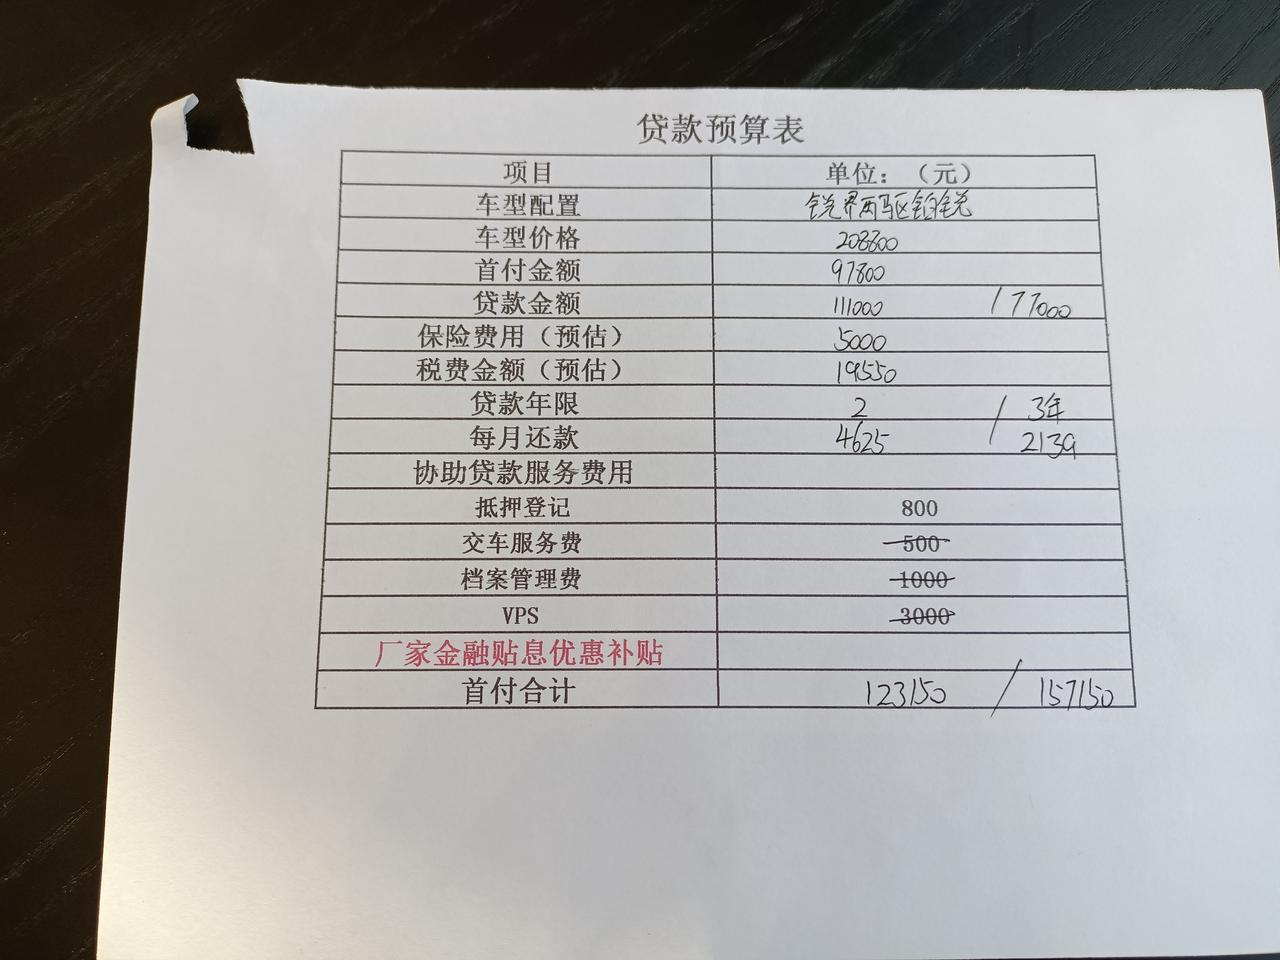 贷款预算表
项目 单位：（元）
车型配置 锐界两驱铂锐
车型价格 208800
首付金额 97800
贷款金额 111000 / 77000
保险费用（预估） 5000
税费金额（预估） 19550
贷款年限 2 / 3年
每月还款 4625 / 2139
协助贷款服务费用
抵押登记 800
交车服务费 500
档案管理费 1000
VPS 3000
厂家金融贴息优惠补贴
首付合计 123150 / 157150